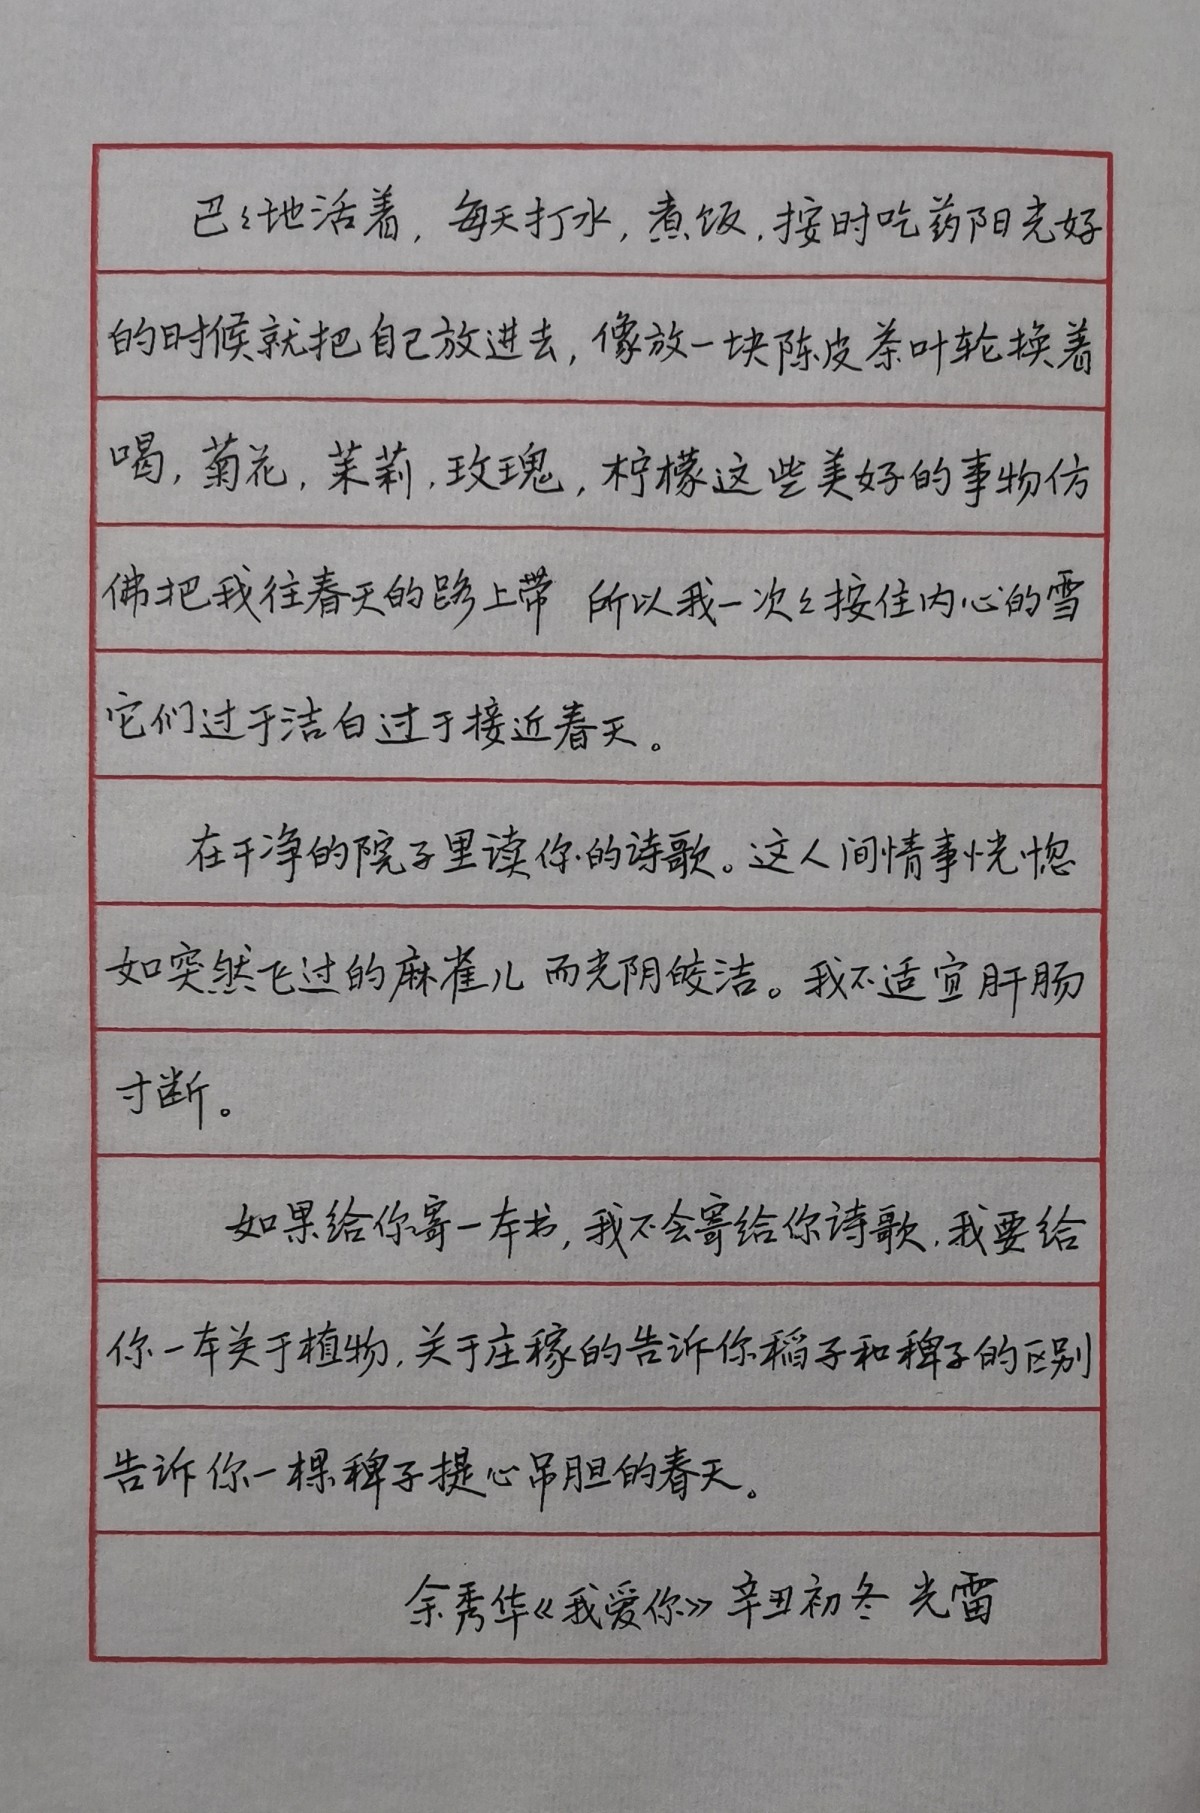 巴々地活着，每天打水，煮饭，按时吃药阳光好
的时候就把自己放进去，像放一块陈皮茶叶轮换着
喝，菊花，茉莉，玫瑰，柠檬这些美好的事物仿
佛把我往春天的路上带 所以我一次々按住内心的雪
它们过于洁白过于接近春天。
在干净的院子里读你的诗歌。这人间情事恍惚
如突然飞过的麻雀儿 而光阴皎洁。我不适宜肝肠
寸断。
如果给你寄一本书，我不会寄给你诗歌，我要给
你一本关于植物，关于庄稼的告诉你稻子和稗子的区别
告诉你一棵稗子提心吊胆的春天。
余秀华《我爱你》辛丑初冬 光雷